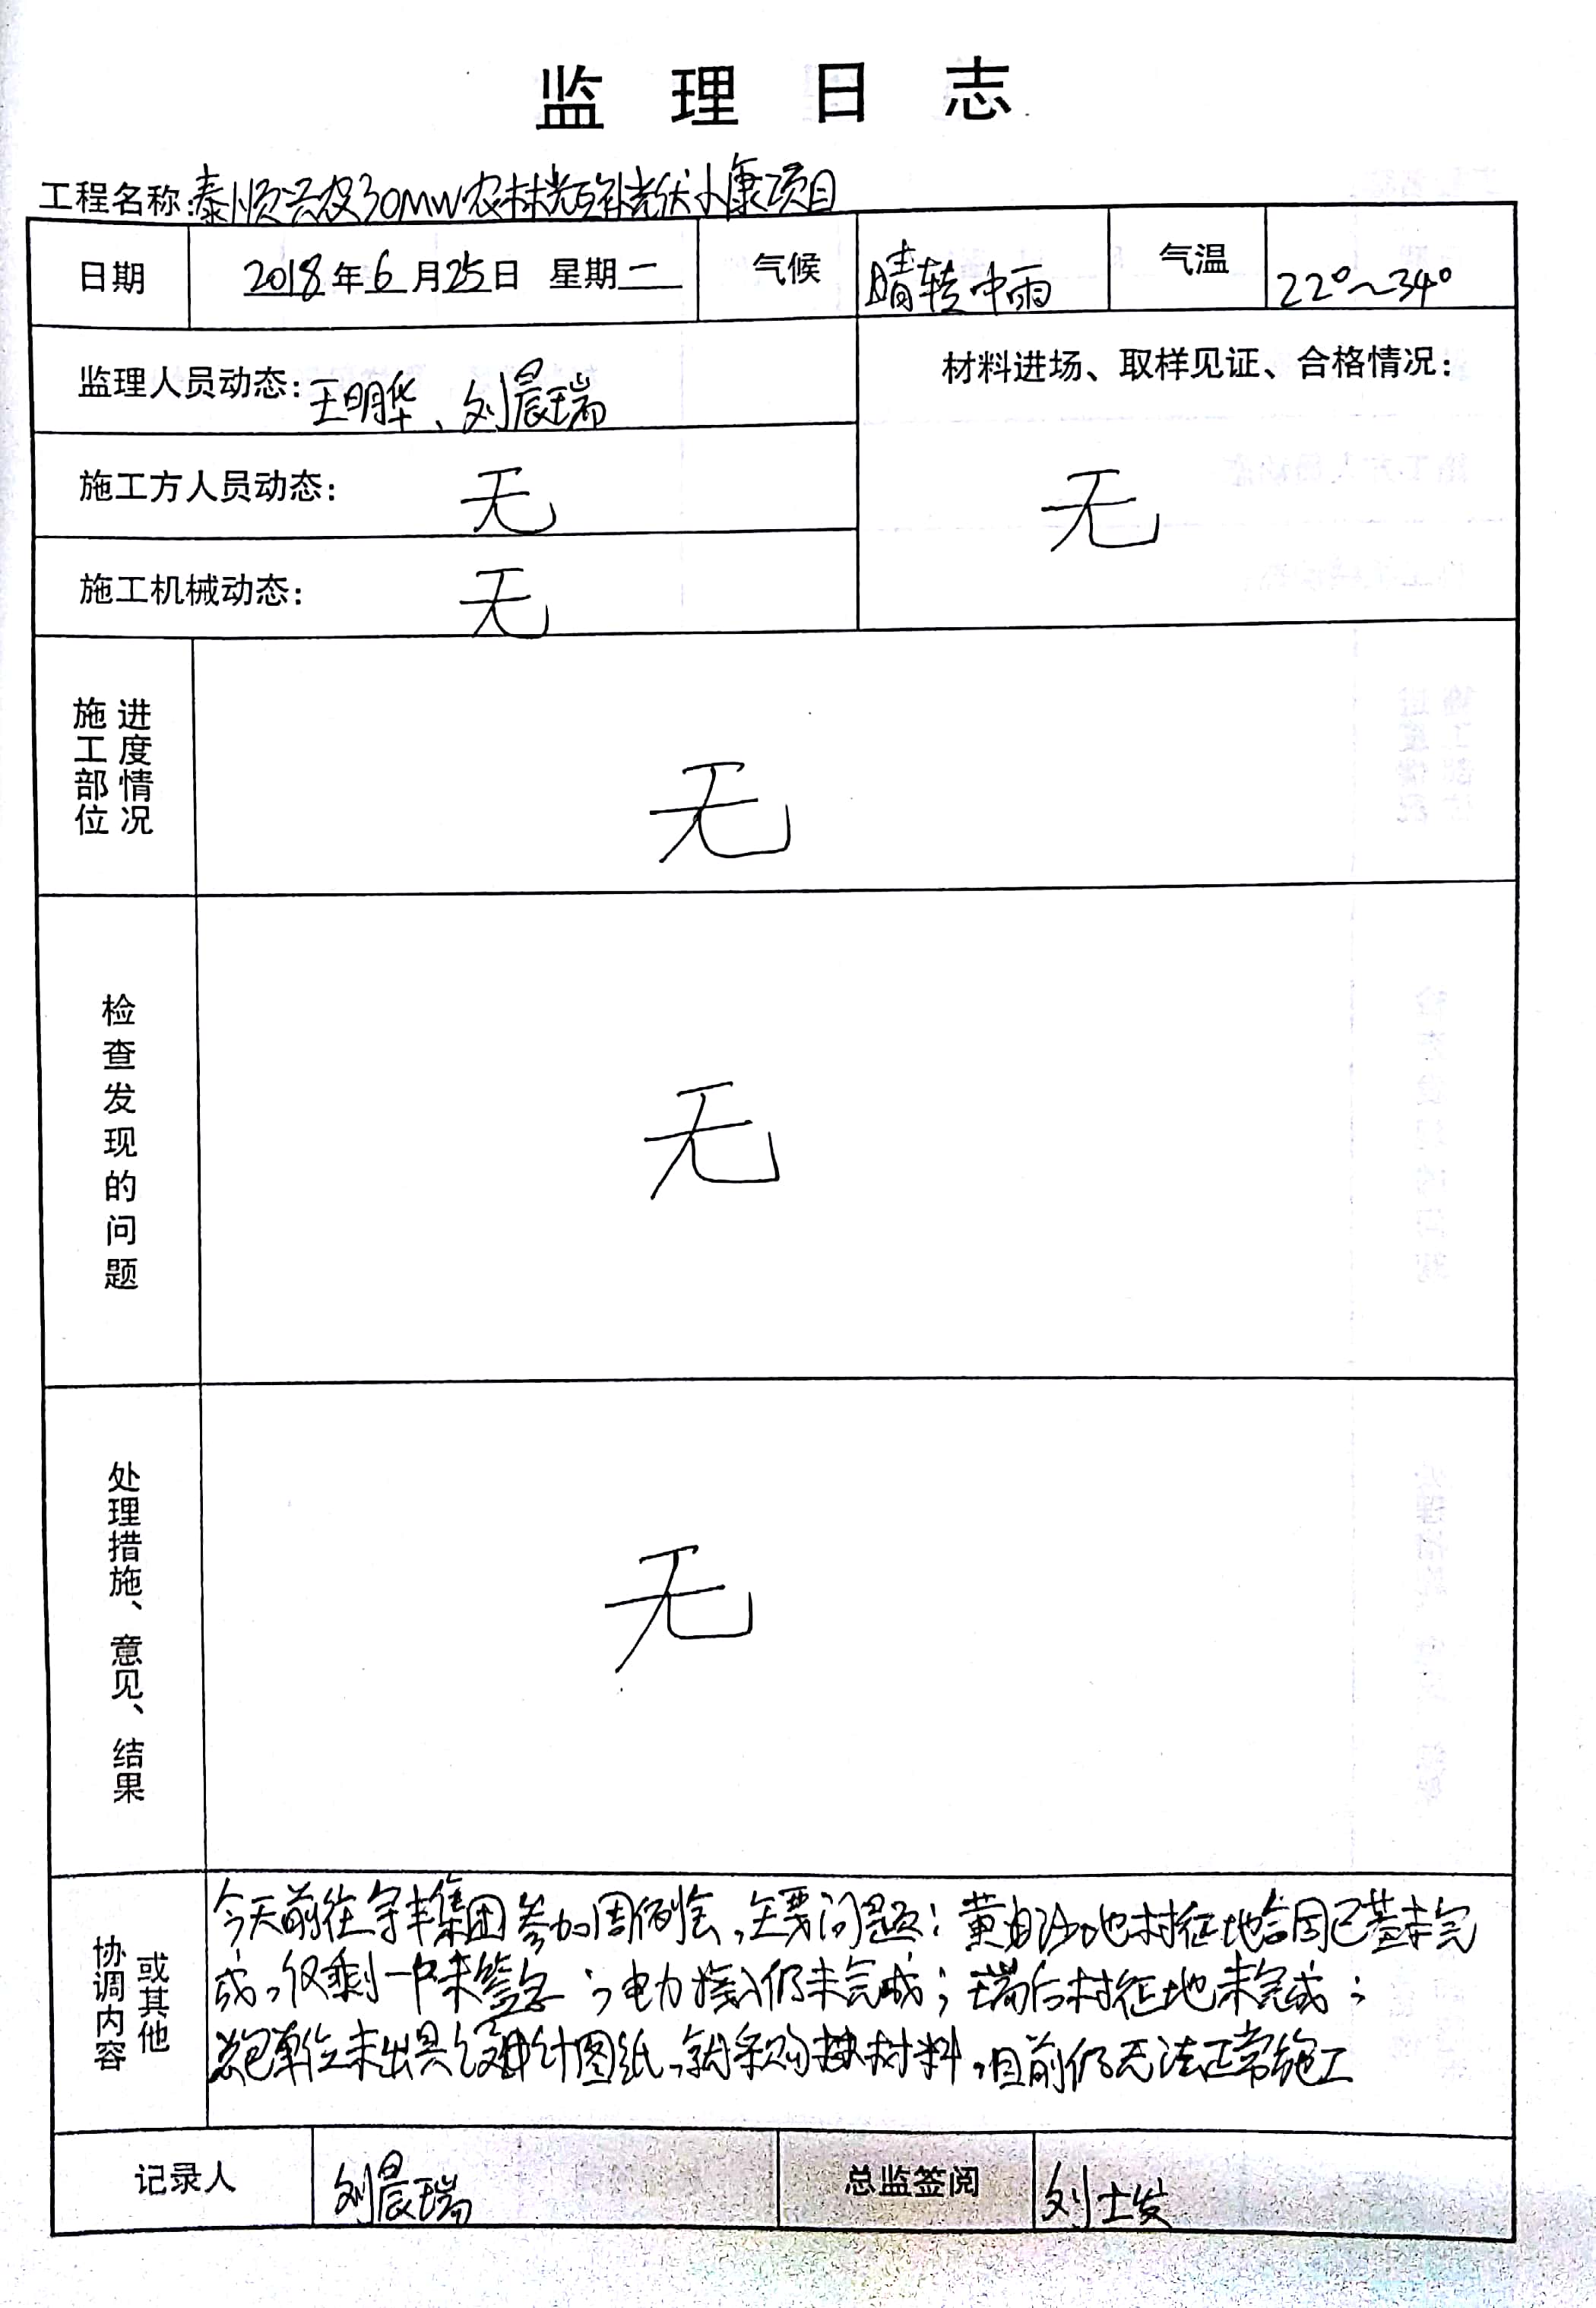 监理日志
工程名称:泰顺兴农30MW农林光互补光伏小康项目
日期 2018年6月25日 星期二 气候 晴转中雨 气温 22°~34°
监理人员动态:王明华、刘晨瑞
材料进场、取样见证、合格情况:
无
施工方人员动态: 无
施工机械动态: 无
施工部位
进度情况
无
检查发现的问题
无
处理措施、意见、结果
无
协调内容
或其他
今天前往宇丰集团参加周例会,主要问题:黄 地村征地合同已基本完
成,仅剩一户未签字;电力接入仍未完成;瑞后村征地未完成;
总包单位未出具 设计图纸, 采购 材料,目前仍无法正常施工
记录人 刘晨瑞 总监签阅 刘士发